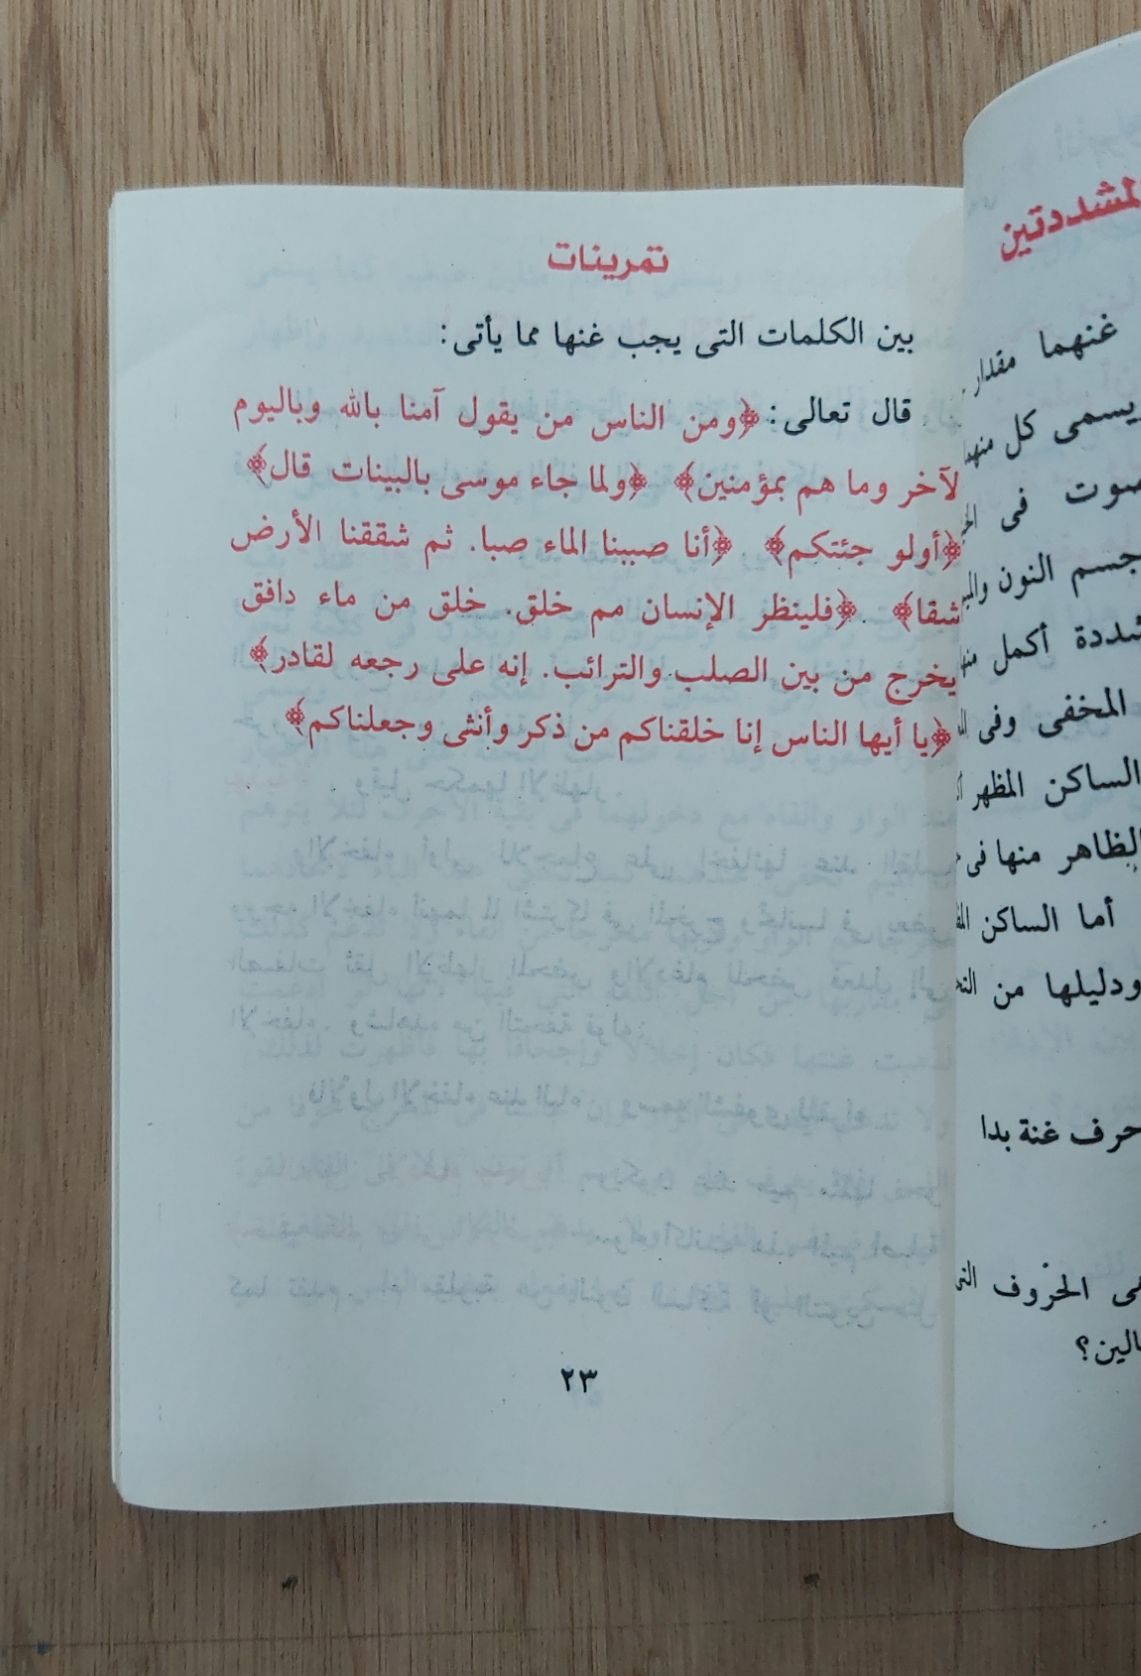 المشددتين
غنهما مقدار
يسمى كل منهما
صوت فى
جسم النون
أكمل
المخفى وفى
الساكن المظهر
الظاهر منها فى
أما الساكن
ودليلها من
حرف غنة بدا
الحروف
تمرينات
بين الكلمات التى يجب غنها مما يأتى:
قال تعالى: ﴿ومن الناس من يقول آمنا بالله وباليوم
لآخر وما هم بمؤمنين﴾ ﴿ولما جاء موسى بالبينات قال﴾
﴿أولو جئتكم﴾ . ﴿أنا صببنا الماء صبا. ثم شققنا الأرض
شقا﴾ . ﴿فلينظر الإنسان مم خلق. خلق من ماء دافق
يخرج من بين الصلب والترائب. إنه على رجعه لقادر﴾
﴿يا أيها الناس إنا خلقناكم من ذكر وأنثى وجعلناكم﴾
٢٣